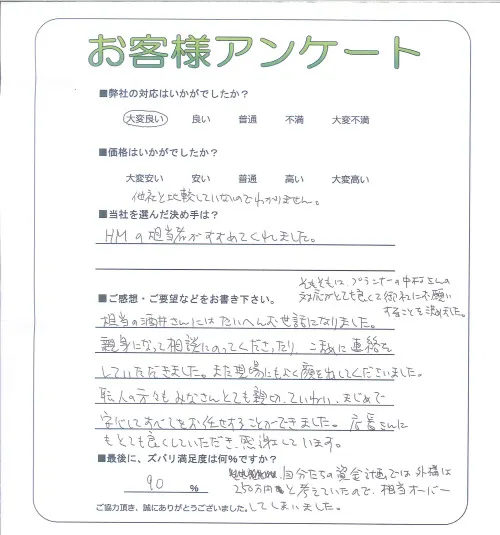 お客様アンケート
■弊社の対応はいかがでしたか？
大変良い 良い 普通 不満 大変不満
■価格はいかがでしたか？
大変安い 安い 普通 高い 大変高い
他社と比較していないのでわかりません。
■当社を選んだ決め手は？
HMの担当者がすすめてくれました。
そもそもは、プランナーの中村さんの
対応がとても良くて御社にお願い
することを決めました。
■ご感想・ご要望などをお書き下さい。
担当の酒井さんにはたいへんお世話になりました。
親身になって相談にのってくださったり、こまめに連絡を
していただきました。また現場にもよく顔を出してくださいました。
職人の方々もみなさんとても親切、ていねい、まじめで
安心してすべてをお任せすることができました。店長さんに
もとても良くしていただき、感謝しています。
■最後に、ズバリ満足度は何％ですか？
90 ％
自分たちの資金計画では外構は
250万円と考えていたので、相当オーバー
してしまいました。
ご協力頂き、誠にありがとうございました。